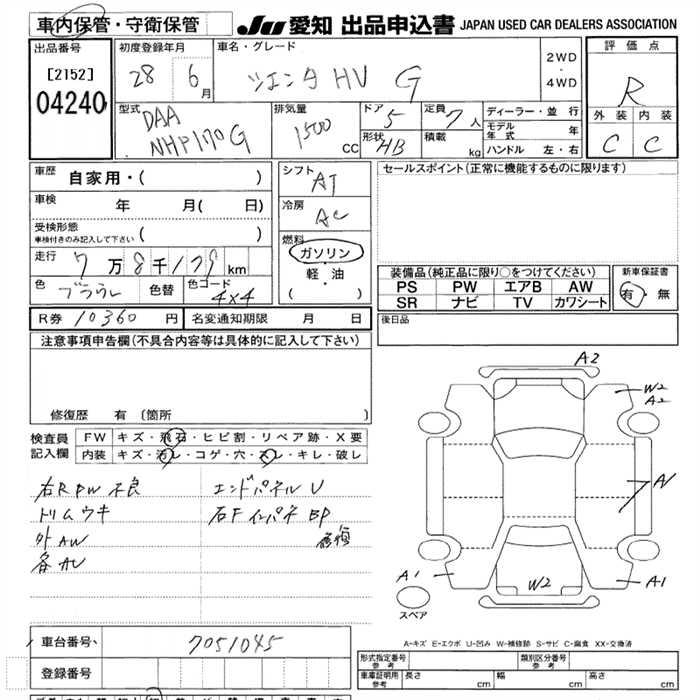 車内保管・守衛保管
JU 愛知 出品申込書 JAPAN USED CAR DEALERS ASSOCIATION
出品番号
[2152]
04240
初度登録年月
28 6月
車名・グレード
シエンタHV G
2WD
・
4WD
評価点
R
外装 内装
C C
型式
DAA
NHP170G
排気量
1500 CC
ドア 5
形状 HB
定員 7人
積載 kg
ディーラー・並行
モデル年式 年
ハンドル 左・右
車歴 自家用・( )
車検 年 月( 日)
受検形態
車検付きのみ記入して下さい
走行 7万8千179km
色 ブラウン 色替 色コード 4X4
シフト AT
冷房 AC
燃料
ガソリン
・
軽・油
( )
セールスポイント(正常に機能するものに限ります)
装備品(純正品に限り○をつけてください)
PS PW エアB AW
SR ナビ TV カワシート
新車保証書
有・無
R券 10360 円 名変通知期限 月 日
後日品
注意事項申告欄(不具合内容等は具体的に記入して下さい)
修復歴 有 (箇所
検査員記入欄
FW キズ・飛石・ヒビ割・リペア跡・X要
内装 キズ・汚レ・コゲ・穴・スレ・キレ・破レ
右R PW 不良
トリムウキ
外AW
各AU
エンドパネルU
右Fインパネ BP
修復
A2
W2
A2
A1
A1
W2
A1
スペア
A-キズ E-エクボ U-凹み W-補修跡 S-サビ C-腐食 XX-交換済
車台番号 7051045
登録番号
形式指定番号 参考
類別区分番号 参考
車庫証明用 参考 長さ cm 幅 cm 高さ cm